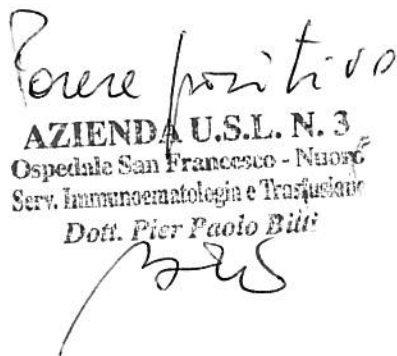 Parere positivo
AZIENDA U.S.L. N. 3
Ospedale San Francesco - Nuoro
Serv. Immunoematologia e Trasfusione
Dott. Pier Paolo Bitti